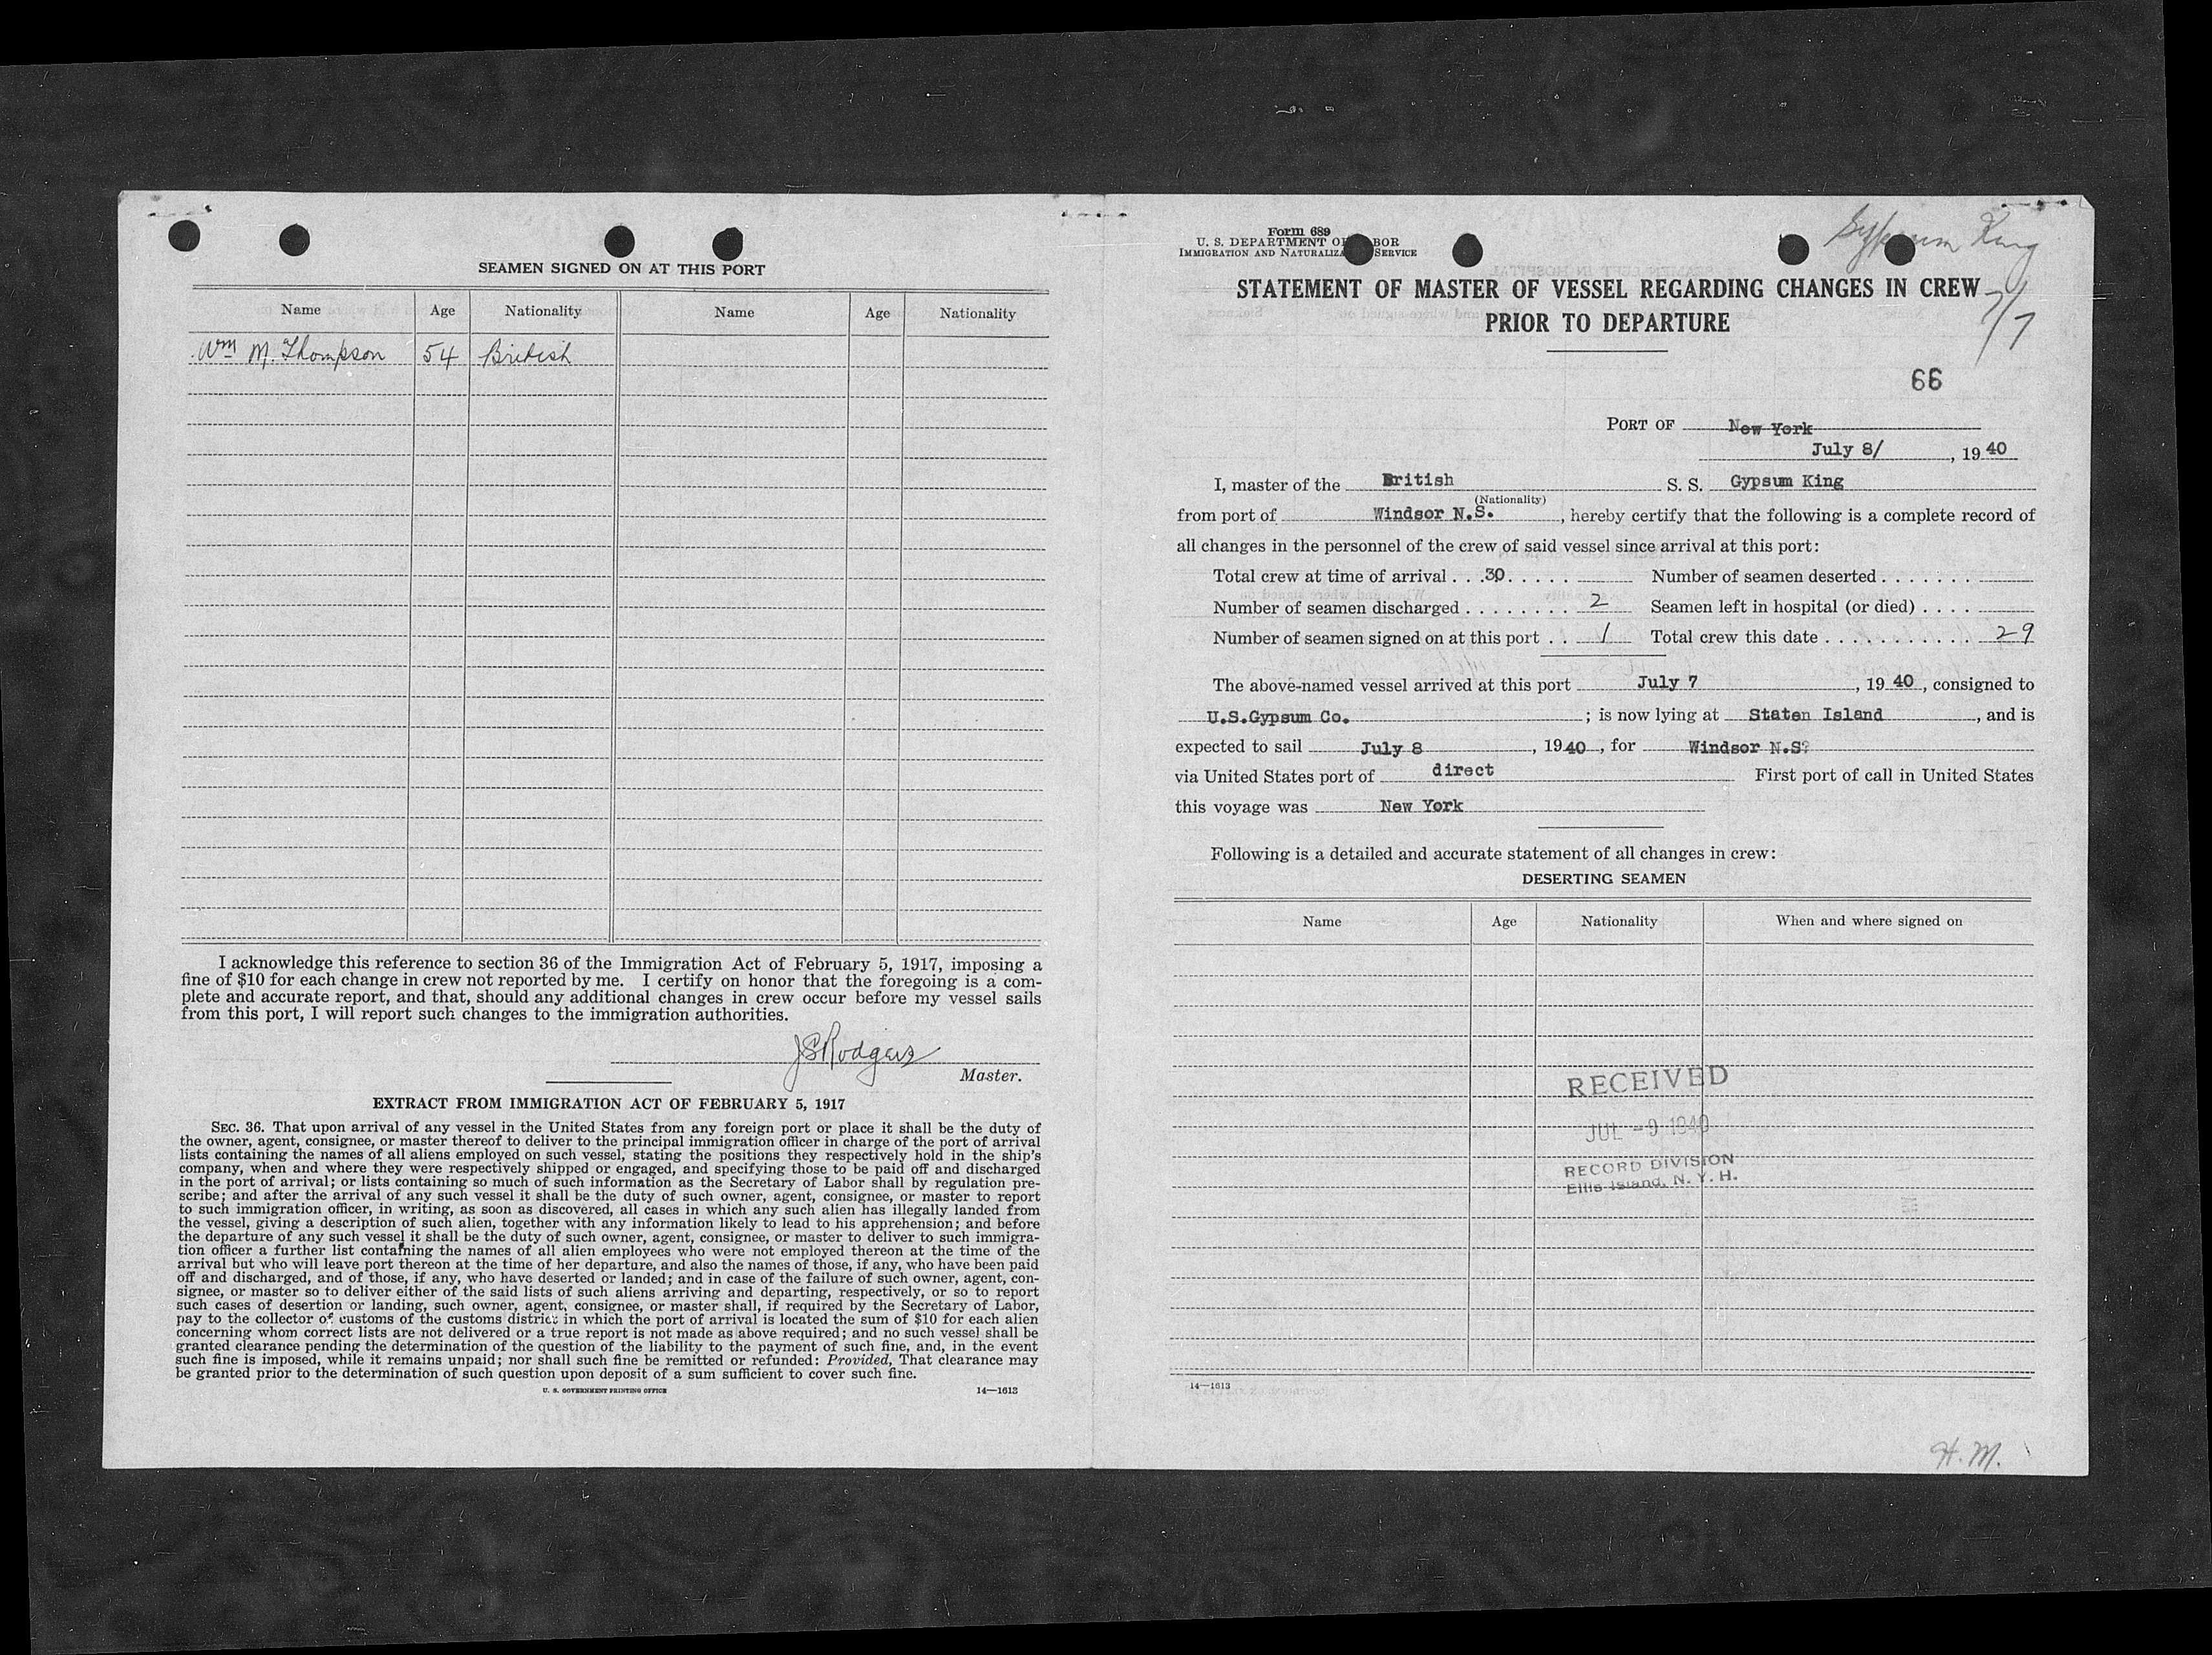 SEAMEN SIGNED ON AT THIS PORT
Name Age Nationality Name Age Nationality
Wm M. Thompson 54 British
I acknowledge this reference to section 36 of the Immigration Act of February 5, 1917, imposing a
fine of $10 for each change in crew not reported by me. I certify on honor that the foregoing is a com-
plete and accurate report, and that, should any additional changes in crew occur before my vessel sails
from this port, I will report such changes to the immigration authorities.
J S Rodgers
Master.
EXTRACT FROM IMMIGRATION ACT OF FEBRUARY 5, 1917
SEC. 36. That upon arrival of any vessel in the United States from any foreign port or place it shall be the duty of
the owner, agent, consignee, or master thereof to deliver to the principal immigration officer in charge of the port of arrival
lists containing the names of all aliens employed on such vessel, stating the positions they respectively hold in the ship's
company, when and where they were respectively shipped or engaged, and specifying those to be paid off and discharged
in the port of arrival; or lists containing so much of such information as the Secretary of Labor shall by regulation pre-
scribe; and after the arrival of any such vessel it shall be the duty of such owner, agent, consignee, or master to report
to such immigration officer, in writing, as soon as discovered, all cases in which any such alien has illegally landed from
the vessel, giving a description of such alien, together with any information likely to lead to his apprehension; and before
the departure of any such vessel it shall be the duty of such owner, agent, consignee, or master to deliver to such immigra-
tion officer a further list containing the names of all alien employees who were not employed thereon at the time of the
arrival but who will leave port thereon at the time of her departure, and also the names of those, if any, who have been paid
off and discharged, and of those, if any, who have deserted or landed; and in case of the failure of such owner, agent, con-
signee, or master so to deliver either of the said lists of such aliens arriving and departing, respectively, or so to report
such cases of desertion or landing, such owner, agent, consignee, or master shall, if required by the Secretary of Labor,
pay to the collector of customs of the customs district in which the port of arrival is located the sum of $10 for each alien
concerning whom correct lists are not delivered or a true report is not made as above required; and no such vessel shall be
granted clearance pending the determination of the question of the liability to the payment of such fine, and, in the event
such fine is imposed, while it remains unpaid; nor shall such fine be remitted or refunded: Provided, That clearance may
be granted prior to the determination of such question upon deposit of a sum sufficient to cover such fine.
U. S. GOVERNMENT PRINTING OFFICE 14—1613
Gypsum King
7/7
Form 689
U. S. DEPARTMENT OF LABOR
IMMIGRATION AND NATURALIZATION SERVICE
STATEMENT OF MASTER OF VESSEL REGARDING CHANGES IN CREW
PRIOR TO DEPARTURE
66
PORT OF New York
July 8/, 1940
I, master of the British S. S. Gypsum King
(Nationality)
from port of Windsor N.S., hereby certify that the following is a complete record of
all changes in the personnel of the crew of said vessel since arrival at this port:
Total crew at time of arrival . . .30. . . . . Number of seamen deserted . . . . . . .
Number of seamen discharged . . . . . . . . 2 Seamen left in hospital (or died) . . . .
Number of seamen signed on at this port . . 1 Total crew this date . . . . . . . . . . . 29
The above-named vessel arrived at this port July 7, 1940, consigned to
U.S.Gypsum Co.; is now lying at Staten Island, and is
expected to sail July 8, 1940, for Windsor N.S?
via United States port of direct First port of call in United States
this voyage was New York
Following is a detailed and accurate statement of all changes in crew:
DESERTING SEAMEN
Name Age Nationality When and where signed on
RECEIVED
JUL -9 1940
RECORD DIVISION
Ellis Island, N. Y. H.
14—1613
H. M.